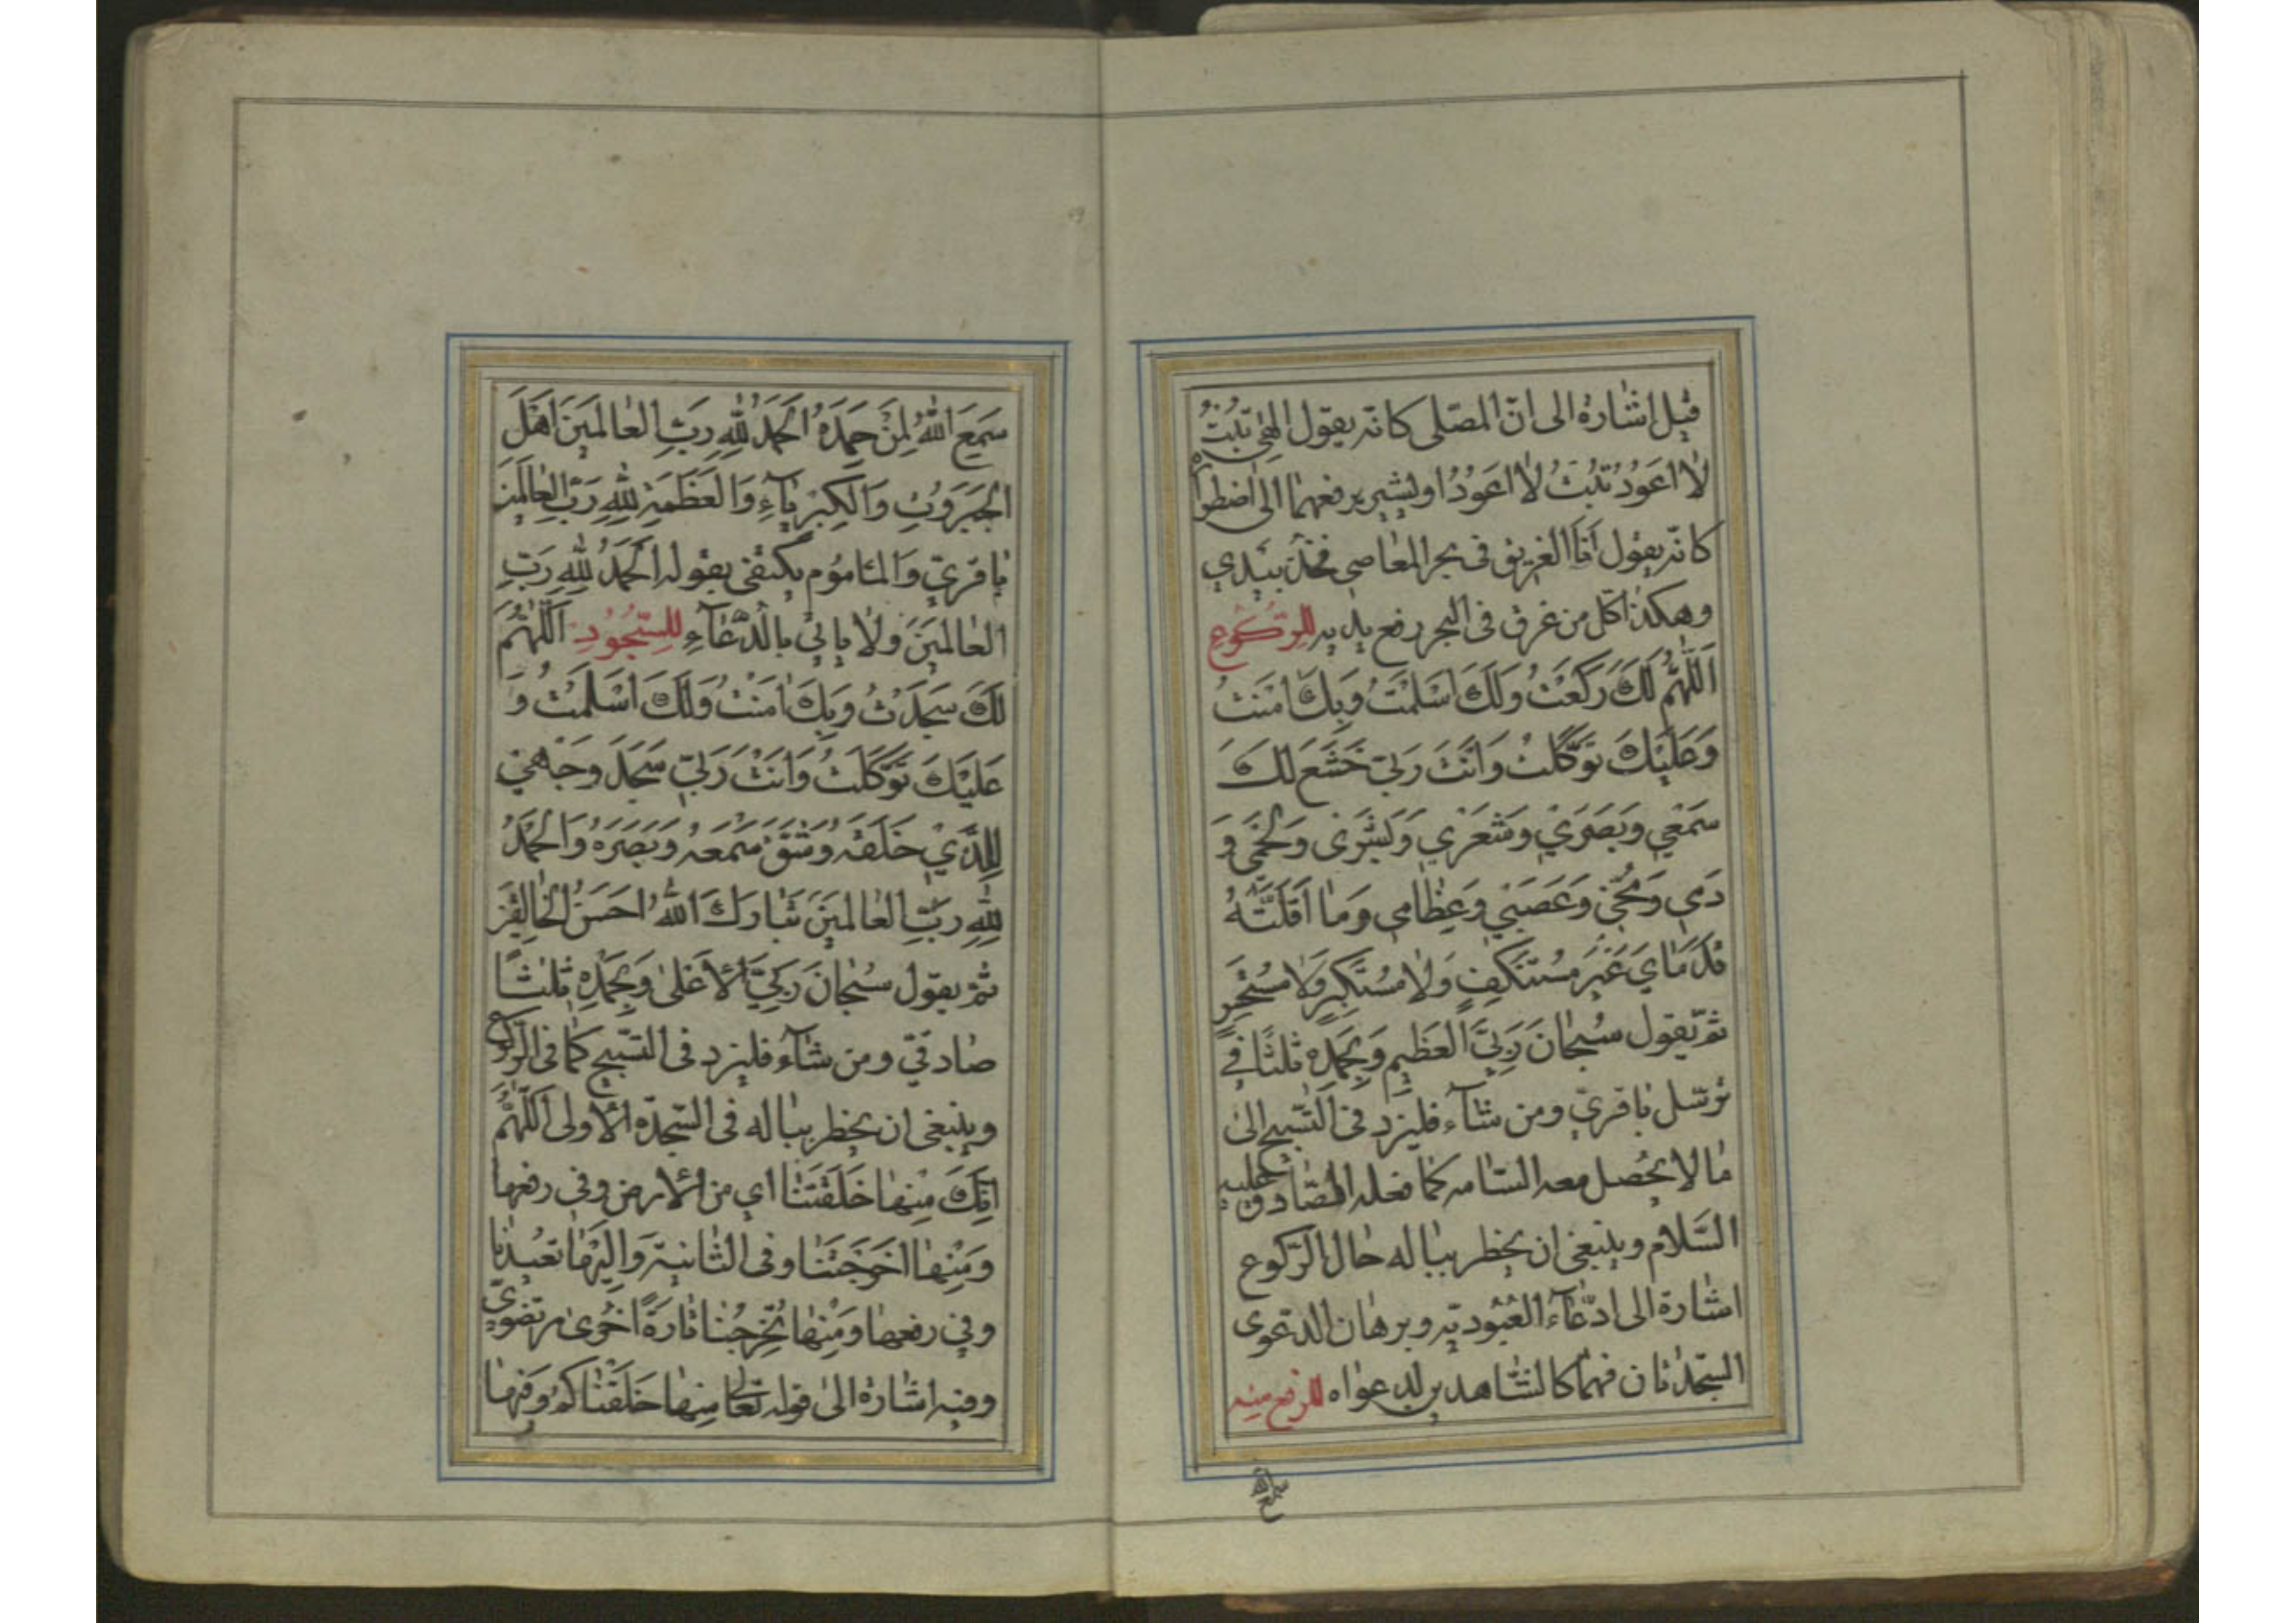 قيل اشارة الى انّ المصلى كانّه يقول الهى تبْتُ
لا اعَوُدُ تبْتُ لا اعَوُدُ او يشير برفعهما الى اضطراره
كانّه يقول اَنَا الغريق فى بحر المعاصى فخذ بيدي
وهكذا كل من غرق فى البحر رفع يديه للرّكُوعِ
اَللّهُمَّ لَكَ رَكَعْتُ وَلَكَ اَسْلَمْتُ وَبِكَ امَنْتُ
وَعَلَيْكَ تَوَكَّلْتُ وَاَنْتَ رَبّي خَشَعَ لَكَ
سَمْعي وَبَصَري وَشَعْري وَبَشَرى وَلَحْمى وَ
دَمي وَمُخّي وَعَصَبي وَعِظامي وَما اَقَلَّتْهُ
قَدَمَايَ غَيْرَ مُسْتَنْكِفٍ وَلا مُسْتَكْبِرٍ وَلا مُسْتَحْسِرٍ
ثمّ يقول سُبْحانَ رَبِّيَ العَظيمِ وَبِحَمْدِه ثلثًا في
ترسّل باقرىّ ومن شآء فليزد فى التّسبيح الى
ما لا يحصل معه السّامه كما فعله الصّادق عليه
السّلام وينبغى ان يخطر بباله حال الرّكوع
اشارة الى ادّعآء العُبُوديّه وبرهان الدّعوى
السّجدتان فهما كالشّاهدين لدعواه للرفع منه
سمع
سَمِعَ اللّهُ لِمَنْ حَمِدَهُ اَلْحَمْدُ لِلّهِ رَبِّ العالَمينَ اَهْلِ
الجَبَرُوتِ وَالكِبْرِيآءِ وَالعَظَمَةِ لِلّهِ رَبِّ العالَمينَ
باقرىّ والمأموم يكتفى بقوله اَلْحَمْدُ لِلّهِ رَبِّ
العالَمينَ ولا ياتي بالدّعآءِ للسُّجُودِ اَللّهُمَّ
لَكَ سَجَدْتُ وَبِكَ امَنْتُ وَلَكَ اَسْلَمْتُ وَ
عَلَيْكَ تَوَكَّلْتُ وَاَنْتَ رَبّي سَجَدَ وَجْهي
لِلَّذي خَلَقَهُ وَشَقَّ سَمْعَهُ وَبَصَرَهُ وَالحَمْدُ
لِلّهِ رَبِّ العالَمينَ تَبارَكَ اللّهُ اَحْسَنُ الخالِقينَ
ثمّ يقول سُبْحانَ رَبِّيَ الاَعْلى وَبِحَمْدِه ثلثًا
صادقىّ ومن شآء فليزد فى التّسبيح كما فى الرّكوع
وينبغى ان يخطر بباله فى السّجدة الاولى اَللّهُمَّ
اِنَّكَ مِنْها خَلَقْتَنا اي من الارض وفى رفعها
وَمِنْها اَخْرَجْتَنا وفى الثّانية وَاِلَيْها تعيدنا
وفى رفعها وَمِنْها تُخْرِجُنا تارَةً اُخْرى مرتضوىّ
وفيه اشارة الى قوله تعالى منها خَلَقْناكُمْ وَفيها